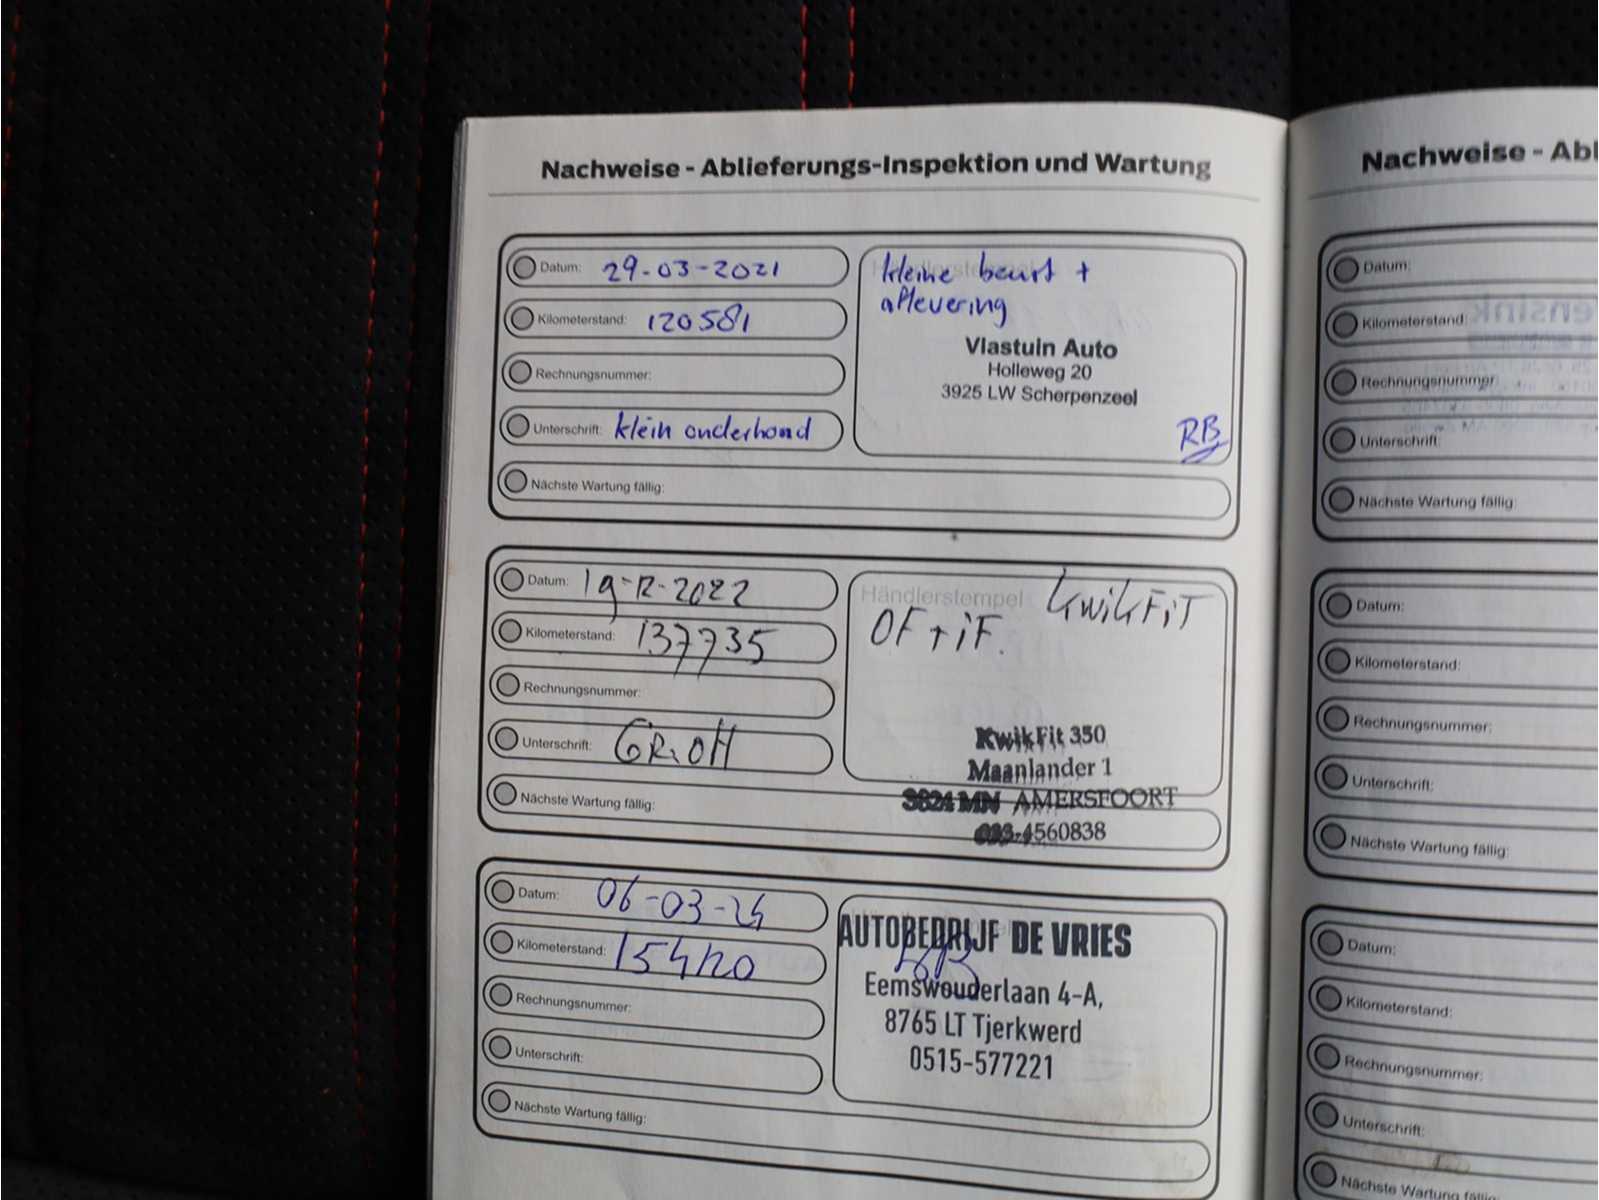 Nachweise - Ablieferungs-Inspektion und Wartung
Datum: 29-03-2021
Kilometerstand: 120581
Rechnungsnummer:
Unterschrift: klein onderhoud
Nächste Wartung fällig:
kleine beurt +
aflevering
Vlastuin Auto
Holleweg 20
3925 LW Scherpenzeel
RB
Datum: 19-12-2022
Kilometerstand: 137735
Rechnungsnummer:
Unterschrift: GR.OH
Nächste Wartung fällig:
Händlerstempel
KwikFiT
OF + iF.
KwikFit 350
Maanlander 1
3824 MN AMERSFOORT
033-4560838
Datum: 06-03-24
Kilometerstand: 154120
Rechnungsnummer:
Unterschrift:
Nächste Wartung fällig:
AUTOBEDRIJF DE VRIES
Eemswouderlaan 4-A,
8765 LT Tjerkwerd
0515-577221
Nachweise - Abl
Datum:
Kilometerstand:
Rechnungsnummer:
Unterschrift:
Nächste Wartung fällig:
Datum:
Kilometerstand:
Rechnungsnummer:
Unterschrift:
Nächste Wartung fällig:
Datum:
Kilometerstand:
Rechnungsnummer:
Unterschrift:
Nächste Wartung fällig: